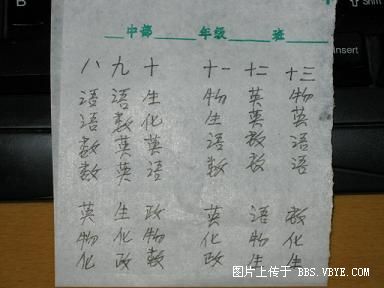 B
Shift
Insert
中部 年级 班
八 九 十 十一 十二 十三
语 语 生 物 英 物
语 数 化 生 英 英
数 英 英 语 数 语
数 英 语 数 数 语
英 生 政 英 语 数
物 化 物 化 物 化
化 政 数 政 生 生
图片上传于 BBS.VBYE.COM